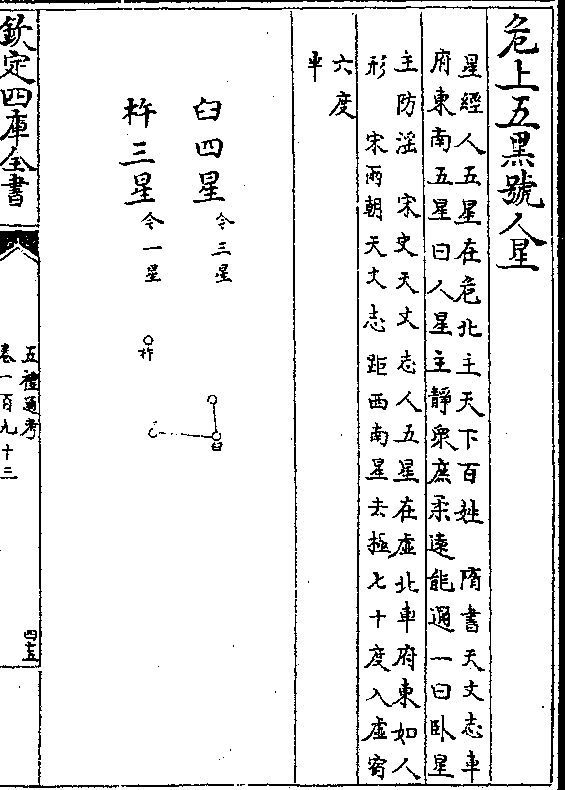 危上五黑號人星
星經人五星在危北主天下百姓　隋書天文志車
府東南五星曰人星主靜衆庶柔遠能邇一曰卧星
主防淫　宋史天文志人五星在虛北車府東如人
形　宋兩朝天文志距西南星去極七十度入虛宿
六度
半
臼四星今三星
杵三星今一星
臼
杵
欽定四庫全書
五禮通考
卷一百九十三
四十五